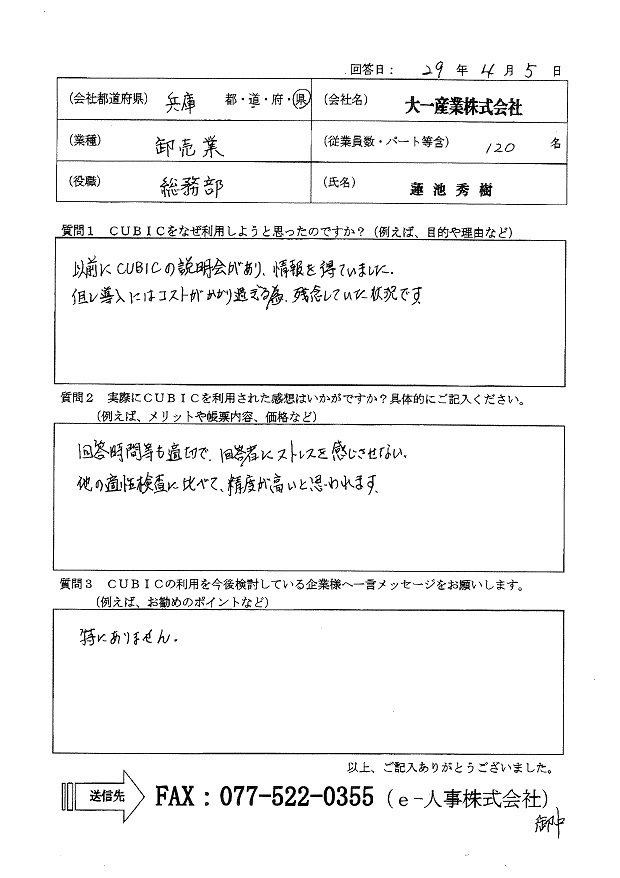 回答日： 29 年 4 月 5 日
（会社都道府県） 兵庫 都・道・府・県 （会社名） 大一産業株式会社
（業種） 卸売業 （従業員数・パート等含） 120 名
（役職） 総務部 （氏名） 蓮池秀樹
質問１ ＣＵＢＩＣをなぜ利用しようと思ったのですか？（例えば、目的や理由など）
以前にCUBICの説明会があり、情報を得ていました。
但し導入にはコストがかかり過ぎる為、残念していた状況です。
質問２ 実際にＣＵＢＩＣを利用された感想はいかがですか？具体的にご記入ください。
（例えば、メリットや帳票内容、価格など）
回答時間等も適切で、回答者にストレスを感じさせない。
他の適性検査に比べて、精度が高いと思われます。
質問３ ＣＵＢＩＣの利用を今後検討している企業様へ一言メッセージをお願いします。
（例えば、お勧めのポイントなど）
特にありません。
以上、ご記入ありがとうございました。
送信先 FAX：077-522-0355（ｅ-人事株式会社）
御中